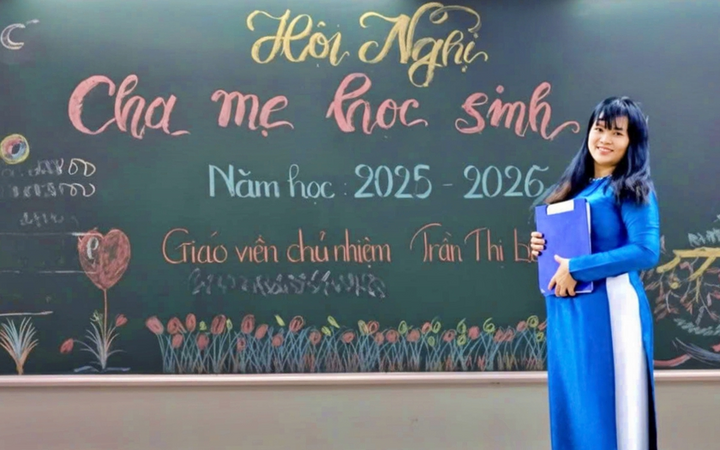 Hội Nghị
Cha mẹ học sinh
Năm học : 2025 - 2026
Giáo viên chủ nhiệm Trần Thị